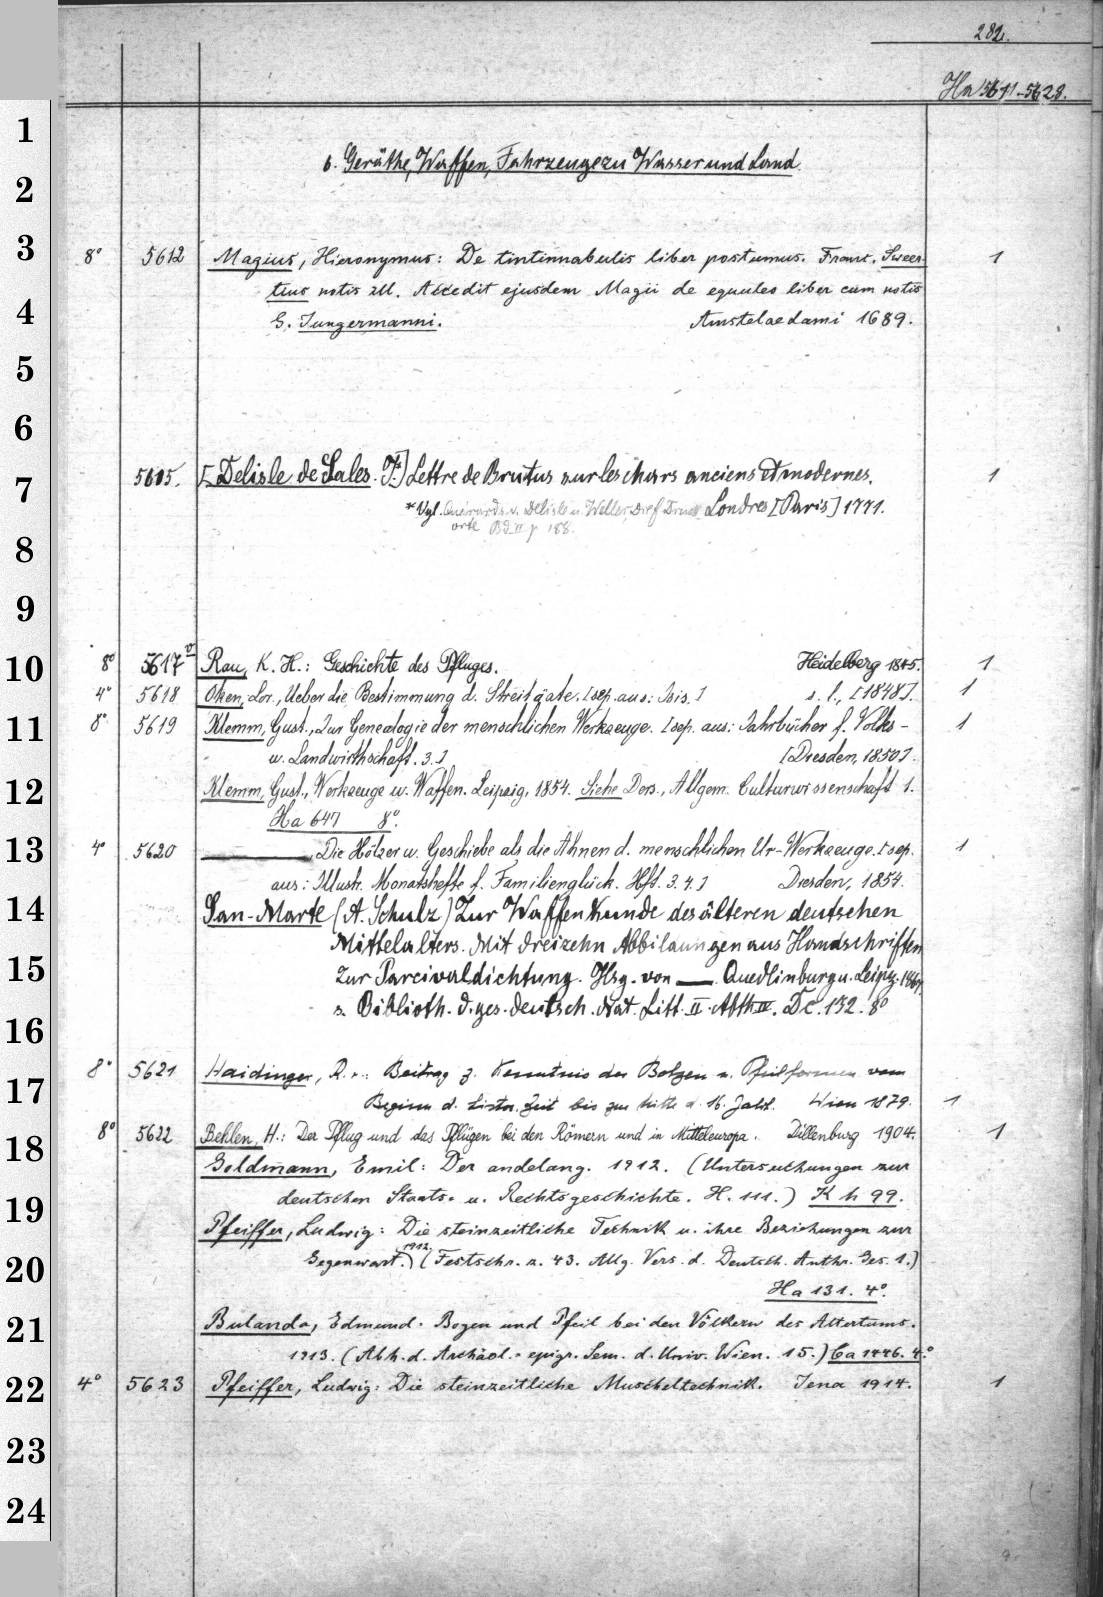 282.
Ha 5611-5628.
6. Geräthe, Waffen, Fahrzeuge zu Wasser und Land.
8° 5612 Magius, Hieronymus: De tintinnabulis liber postumus. Franc. Sweer- 1
tius notis ill. Accedit ejusdem Magii de equuleo liber cum notis
G. Jungermanni. Amstelaedami 1689.
5615. [Delisle de Sales. J.] Lettre de Brutus sur les chars anciens et modernes. 1
* Vgl. Quérard s. v. Delisle u. Weller, Druck Londres [Paris] 1771.
orte Bd II p 188.
8° 5617 Rau, K. H.: Geschichte des Pfluges. Heidelberg 1845. 1
4° 5618 Oken, Lor., Ueber die Bestimmung d. Streitgate. [sep. aus: Isis.] s. l., [1848]. 1
8° 5619 Klemm, Gust., Zur Genealogie der menschlichen Werkzeuge. [sep. aus: Jahrbücher f. Volks- 1
u. Landwirthschaft. 3.] [Dresden, 1850].
Klemm, Gust., Werkzeuge u. Waffen. Leipzig, 1854. Siehe Ders., Allgem. Culturwissenschaft 1.
Ha 647 8°.
4° 5620 ———, Die Hölzer u. Geschiebe als die Ahnen d. menschlichen Ur-Werkzeuge. [sep. 1
aus: Illustr. Monatshefte f. Familienglück. Hft. 3. 4.] Dresden, 1854.
San-Marte (A. Schulz) Zur Waffenkunde des älteren deutschen
Mittelalters. Mit dreizehn Abbildungen aus Handschriften
zur Parcivaldichtung. Hsg. von —. Quedlinburg u. Leipzg. 1867.
s. Biblioth. d. ges. deutsch. Nat. Litt. II. Abth. IV. De. 132. 8°
8° 5621 Haidinger, R. v.: Beitrag z. Kenntnis der Bolzen u. Pfeilformen vom
Beginn d. histor. Zeit bis zur Mitte d. 16. Jahrh. Wien 1879. 1
8° 5622 Behlen, H.: Der Pflug und das Pflügen bei den Römern und in Mitteleuropa. Dillenburg 1904. 1
Goldmann, Emil: Der andelang. 1912. (Untersuchungen zur
deutschen Staats- u. Rechtsgeschichte. H. 111.) K h 99.
Pfeiffer, Ludwig: Die steinzeitliche Technik u. ihre Beziehungen zur
Gegenwart. 1912. (Festschr. z. 43. Allg. Vers. d. Deutsch. Anthr. Ges. 1.)
Ha 131. 4°.
Bulanda, Edmund. Bogen und Pfeil bei den Völkern des Altertums.
1913. (Abh. d. Archäol.-epigr. Sem. d. Univ. Wien. 15.) Ca 1446. 4°
4° 5623 Pfeiffer, Ludwig: Die steinzeitliche Muscheltechnik. Jena 1914. 1
1
2
3
4
5
6
7
8
9
10
11
12
13
14
15
16
17
18
19
20
21
22
23
24